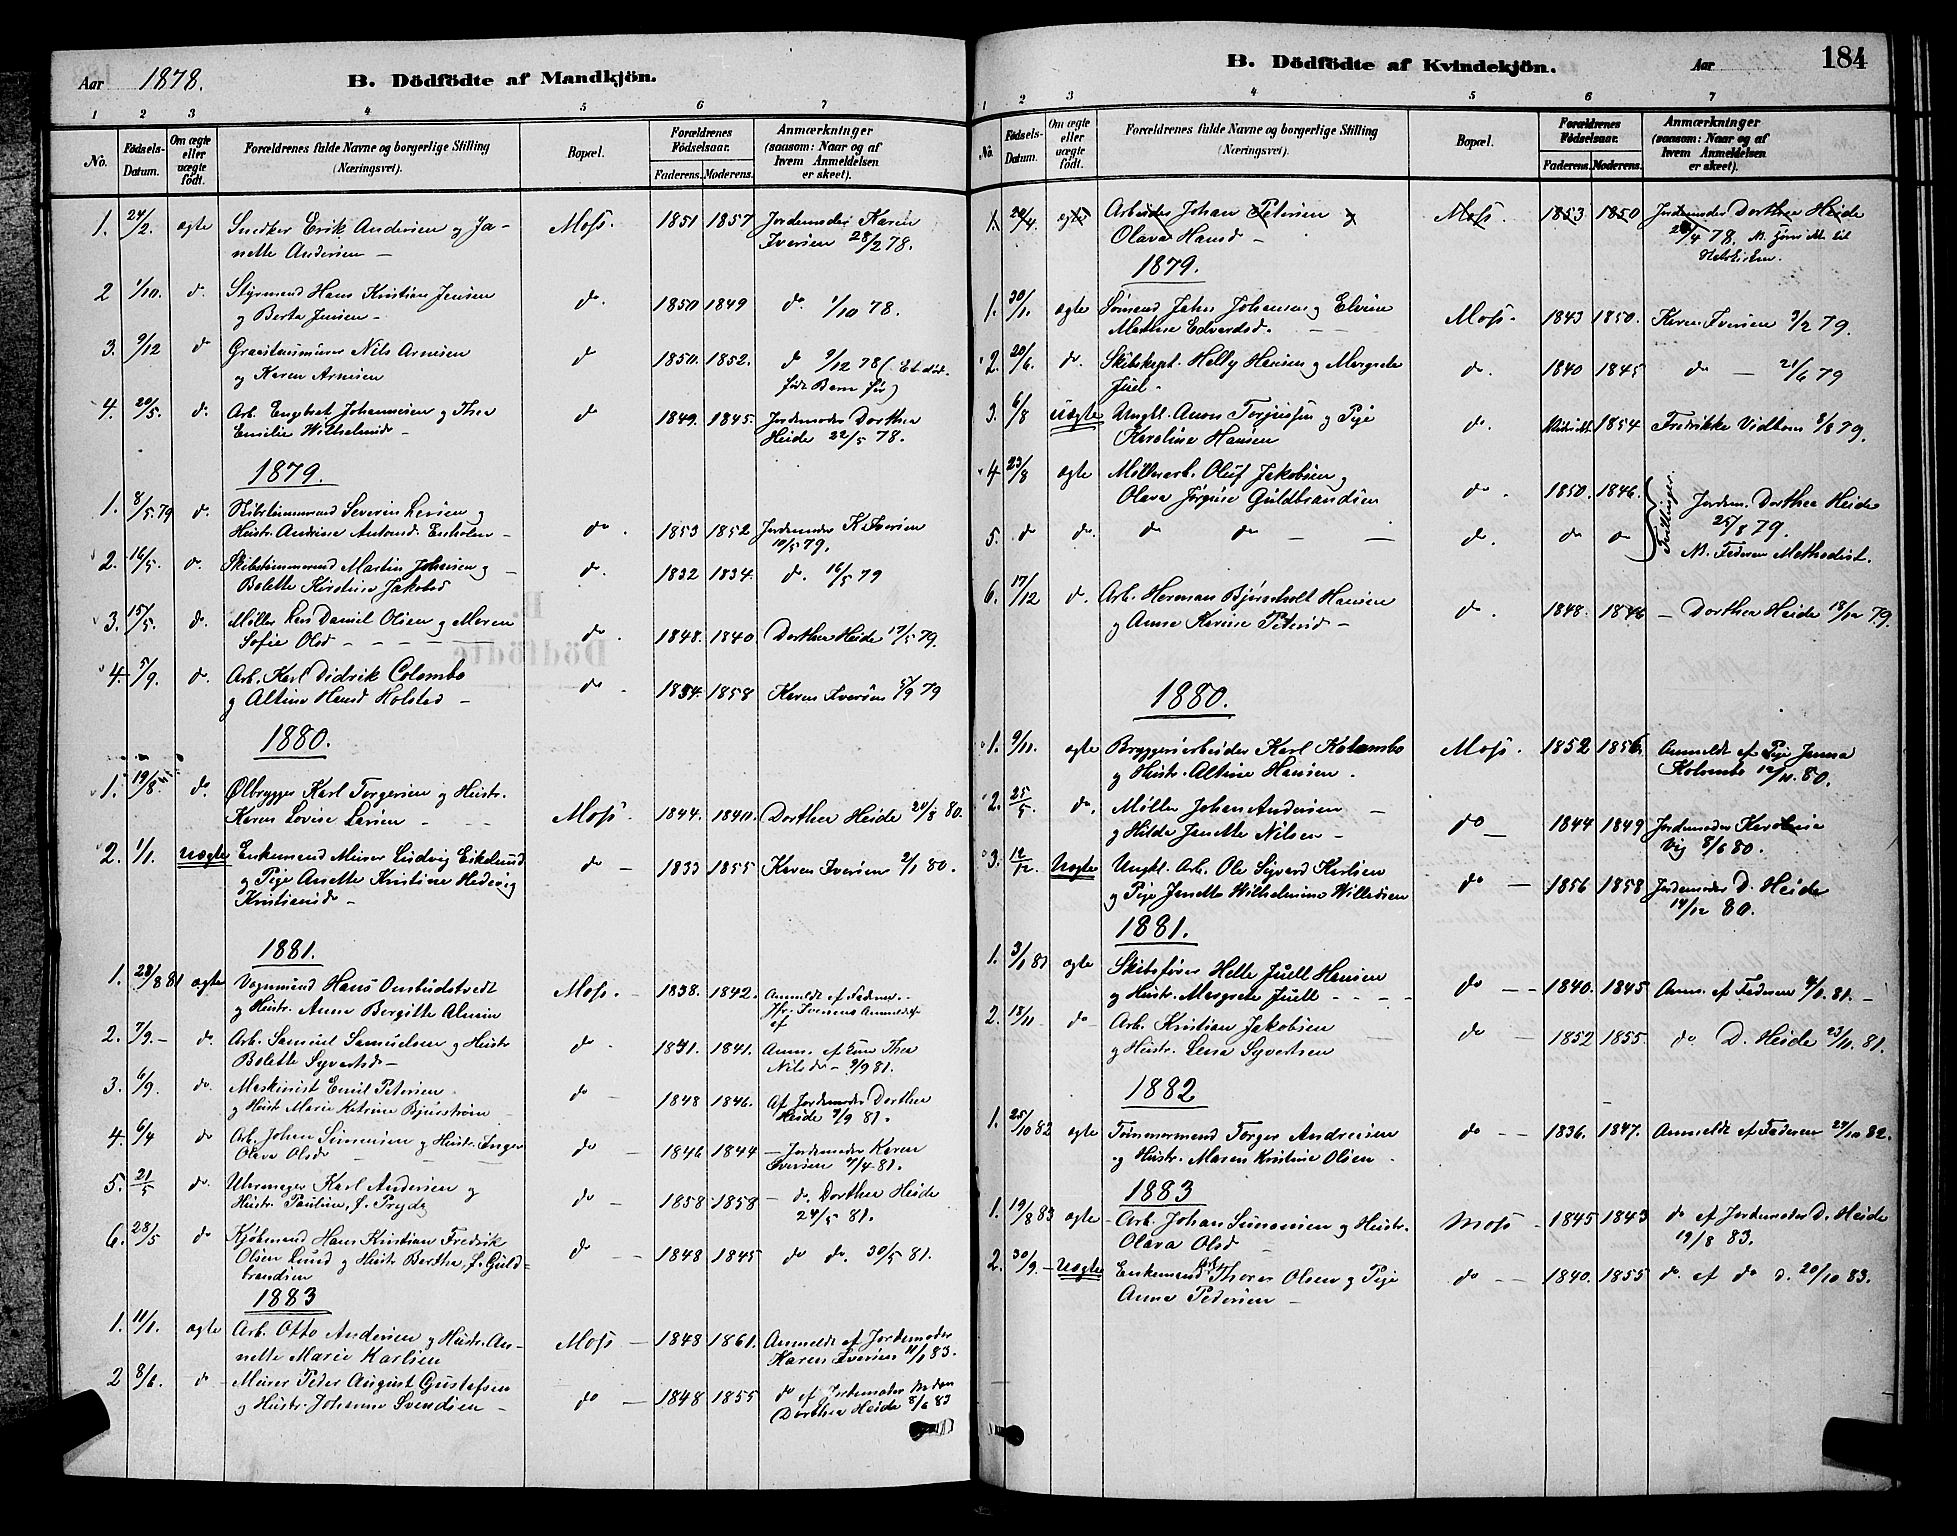 Aar 1878. B. Dödfödte af Mandkjön.
1 2 3 4 5 6 7
No. Födsels-Datum. Om ægte eller uægte födt. Forældrenes fulde Navne og borgerlige Stilling (Næringsvei). Bopæl. Forældrenes Födselsaar. Faderens. Moderens. Anmærkninger (saasom: Naar og af hvem Anmeldelsen er skeet).
1. 24/2. ægte Snedker Erik Andersen og Ja- Moss. 1851 1857 Jordemoder Karen
nette Andersen — Iversen 28/2 78.
2 1/10. do. Styrmand Hans Kristian Jensen do 1850 1849 do 1/10 78.
og Berta Jensen –
3. 9/12 do Graastensmurer Nils Arnesen do 1850. 1852. do 9/12 78 (Et död-
og Karen Arnesen födt Barn för)
4. 20/5. do. Arb. Engebret Johannesen og Thea do 1849. 1845. Jordemoder Dorthea
Emilie Wilhelmsd – Heide 22/5 78.
1879.
1. 8/5.79 do. Skibstømmermand Severin Larsen og do. 1853 1852 Jordemoder K Iversen
Hustr. Andrine Antonsd. – 10/5 79.
2. 16/5. do. Skibstømmermand Martin Johnsen og do. 1832 1834. do. 16/5 79
Bolette Kirstine Jakobsd
3. 15/5. do. Møller Lars Daniel Olsen og Maren do. 1848. 1840 Dorthea Heide 17/5 79.
Sofie Olsd – – –
4. 5/9. do. Arb. Karl Didrik Colombo do. 1854. 1858 Karen Iversen 5/9 79
og Altine Hansd Holstad –
1880.
1. 19/8 do. Ølbrygger Karl Torgersen og Hustr. Moss. 1844. 1840. Dorthea Heide 20/8 80.
Karen Lovise Larsen – –
2. 1/1. Uægte Enkemand Murer Ludvig Eikelund do – 1833 1855 Karen Iversen 2/1 80.
og Pige Anette Kristine Hedevig
Kristiansd –
1881.
1. 28/8 81 ægte Vognmand Hans Ombudstvedt Moss. – 1838. 1842. Anmeldt af Faderen.
og Hustr. Anna Bergitte Almin Jfr. Iversens Anmeldelse
af
2. 7/9. – do. Arb. Samuel Samuelsen og Hustr do. – 1841. Anm. af Thea
Bolette Syvertsd – Nilsd – 9/9 81.
3. 6/9. do. Maskinist Emil Petersen do – 1848 1846. Af Jordemoder Dorthea
og Hustr Marie Katrine Bjurstrøm Heide 9/9 81.
4. 6/4 do Arb. Johan Simensen og Hustr. Inger do – 1846 1844 – Jordemoder Karen
Olava Olsd – Iversen 7/4 81.
5. 21/5 do. Uhrmager Karl Andersen og do – 1858 1858 – do. Dorthea Heide
Hustr. Pauline, f. Prydz 24/5 81.
6. 28/5 do Kjøbmand Hans Kristian Fredrik do – – 1848 1845 do do. 30/5 81.
Olsen Lund og Hustr Berthe, f. Guld-
brandsen
1883
1. 11/1. ægte Arb. Otto Andersen og Hustr. An- Moss – 1848 1861. Anmeldt af Jordemoder
nette Marie Karlsen Karen Iversen 11/1 83.
2 8/6. do Murer Peder August Gustafsen do – 1848 1855 do af Jordemoder Madam
og Hustr. Johanne Svendsen – Dorthea Heide 8/6 83
B. Dödfödte af Kvindekjön. Aar 184
1 2 3 4 5 6 7
No. Födsels-Datum. Om ægte eller uægte födt. Forældrenes fulde Navne og borgerlige Stilling (Næringsvei). Bopæl. Forældrenes Födselsaar. Faderens. Moderens. Anmærkninger (saasom: Naar og af hvem Anmeldelsen er skeet).
1. 20/4. ægte Arbeider Johan Petersen og Moss. 1853 1850 Jordemoder Dorthea Heide
Olava Hansd – /4 78.
1879.
1. 30/1. ægte Sømand Johan Johansen og Elvine Moss. 1843 1850. Karen Iversen 3/2 79.
Mathea Edvardsd. – –
2. 20/6. do. Skibskapt. Helly Hansen og Margrete do. 1840 1845 do – 21/6 79
Juel –
3. 6/8 Uægte Ungkl. Anon Torjussen og Pige do. 1854 Fredrikke Vidthom 8/8 79.
Karoline Hansen
4 23/8 ægte Møllerarb. Oluf Jakobsen og do. 1850. 1846. Tvillinger Jordem. Dorthea Heide
Olava Jørgine Guldbrandsen 25/8 79.
5. do do. do do – – do. do do N. Faderen Methodist.
6. 17/12 do. Arb. Herman Bjørnholt Hansen do. 1848. 1846 – Dorthea Heide 18/12 79.
og Anne Karine Petersd –
1880.
1. 9/11. ægte Bryggeriarbeider Karl Kolombo Moss. 1852 1856. Anmeldt af Pige Janna
og Hustr. Altine Hansen. Kolombo 12/11. 80.
2. 25/5. do. Møller Johan Andersen – do – 1844 1849 Jordemoder Karoline
og Hilda Janette Nilsen – Vig 8/6 80.
3. 12/12. Uægte Ungkl. Arb. Ole Syverd Karlsen do – 1856 1858 Jordemoder D. Heide
og Pige Janette Wilhelmine Willadsen 14/12 80.
1881.
1. 3/1 81 ægte Skibsfører Helle Juell Hansen do – – 1840. 1845 Anm. af Faderen 4/1. 81. –
og Hustr. Margrete Juell – – –
2. 18/11 do Arb. Kristian Jakobsen do – 1852 1855. do D. Heide 23/11. 81.
og Hustr. Lena Syvertsen
1882
1. 25/10 82 ægte Tømmermand Torger Andresen do – – 1836. 1847. Anmeldt af Faderen 27/10 82.
og Hustr. Maren Kristine Olsen.
1883
1. 19/8 83 ægte Arb. Johan Simensen og Hustr. Moss – 1845 1843 do af Jordemoder D. Heide
Olava Olsd – 19/8 83.
2. 30/9. – Uægte Enkemand Thores Olsen og Pige do – – 1840. 1855 do af do d. 20/10 83.
Anna Pedersen –